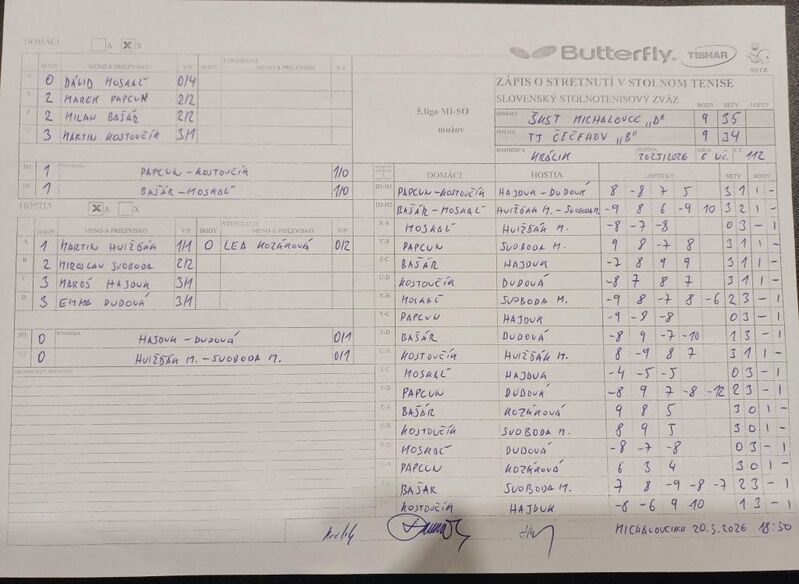 DOMÁCI A X X
Butterfly TIBHAR SSTZ
BODY MENO A PRIEZVISKO V/P BODY STRIEDANIE MENO A PRIEZVISKO V/P
0 DÁVID MOSKAĽ 0/4
2 MAREK PAPCUN 2/2
2 MILAN BAŠÁR 2/2
3 MARTIN KOSTOVČÍK 3/1
D1 1 ŠTVORHRA PAPCUN-KOSTOVČÍK 1/0
D2 1 BAŠÁR-MOSKAĽ 1/0
HOSTIA X A X
BODY MENO A PRIEZVISKO V/P BODY STRIEDANIE MENO A PRIEZVISKO V/P
A 1 MARTIN HVIŽĎÁK 1/1 0 LEA KOZÁKOVÁ 0/2
B 2 MIROSLAV SVOBODA 2/2
C 3 MAROŠ HAJDUK 3/1
D 3 EMMA DUDOVÁ 3/1
H1 0 ŠTVORHRA HAJDUK-DUDOVÁ 0/1
H2 0 HVIŽĎÁK M.-SVOBODA M. 0/1
5.liga MI-SO
mužov
ZÁPIS O STRETNUTÍ V STOLNOM TENISE
SLOVENSKÝ STOLNOTENISOVÝ ZVÄZ BODY SETY LOPTY
DOMÁCI ŠKST MICHALOVCE "D" 9 35
HOSTIA TJ ČEČEHOV "B" 9 34
ROZHODCA KRÁLIK SEZÓNA 2025/2026 112
DOMÁCI HOSTIA LOPTIČKY SETY BODY
D1-H1 PAPCUN-KOSTOVČÍK HAJDUK-DUDOVÁ 8 -8 7 5 3 1 1 -
D2-H2 BAŠÁR-MOSKAĽ HVIŽĎÁK M.-SVOBODA M. -9 8 6 -9 10 3 2 1 -
X-A MOSKAĽ HVIŽĎÁK M. -8 -7 -8 0 3 - 1
Y-B PAPCUN SVOBODA M. 9 8 -7 8 3 1 1 -
Z-C BAŠÁR HAJDUK -7 8 9 9 3 1 1 -
U-D KOSTOVČÍK DUDOVÁ -8 7 8 7 3 1 1 -
X-B MOSKAĽ SVOBODA M. -9 8 -7 8 -6 2 3 - 1
Y-C PAPCUN HAJDUK -9 -8 -8 0 3 - 1
Z-D BAŠÁR DUDOVÁ -8 9 -7 -10 1 3 - 1
U-A KOSTOVČÍK HVIŽĎÁK M. 8 -9 8 7 3 1 1 -
X-C MOSKAĽ HAJDUK -4 -5 -5 0 3 - 1
Y-D PAPCUN DUDOVÁ -8 9 7 -8 -12 2 3 - 1
Z-A BAŠÁR KOZÁKOVÁ 9 8 5 3 0 1 -
U-B KOSTOVČÍK SVOBODA M. 8 9 5 3 0 1 -
X-D MOSKAĽ DUDOVÁ -8 -7 -8 0 3 - 1
Y-A PAPCUN KOZÁKOVÁ 6 3 4 3 0 1 -
BAŠÁR SVOBODA M. 7 8 -9 -8 -7 2 3 - 1
KOSTOVČÍK HAJDUK -8 -6 9 -10 1 3 - 1
20.3.2026 18:30